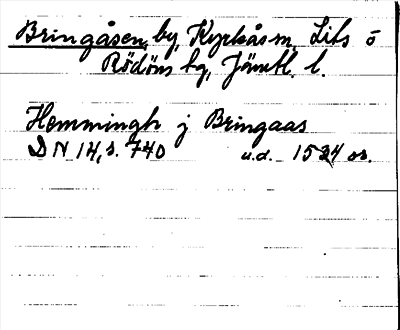 Bringåsen, by, Kyrkås sn, Lits o
Rödöns tg, Jämtl. l.
Hemmingh j Bringaas
DN 14, s. 740 u.d. 1524 os.